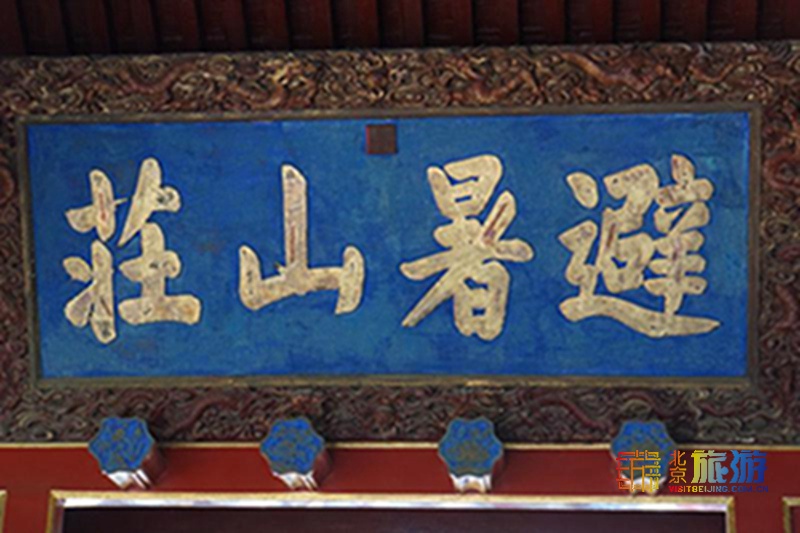 避暑山莊
北京旅游
VISITBEIJING.COM.CN